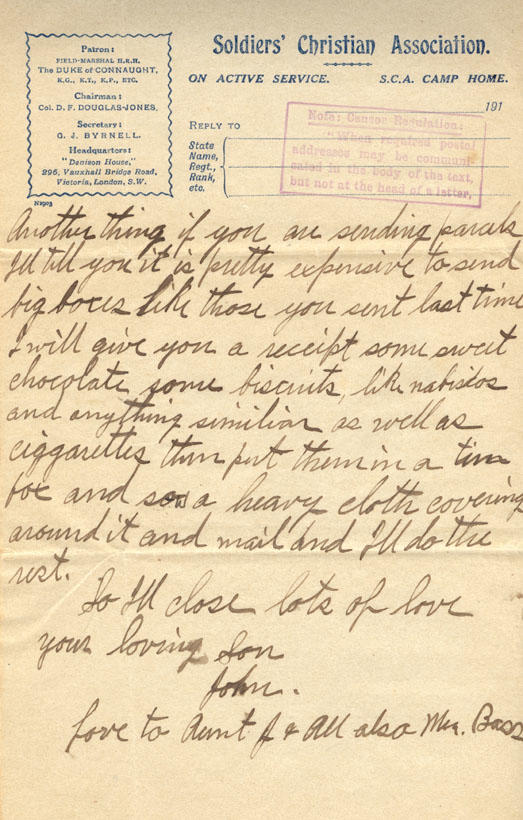 Patron:
FIELD-MARSHAL H.R.H.
The DUKE of CONNAUGHT,
K.G., K.T., K.P., ETC.
Chairman:
Col. D. F. DOUGLAS-JONES.
Secretary:
G. J. BYRNELL.
Headquarters:
"Denison House,"
296, Vauxhall Bridge Road,
Victoria, London, S.W.
N2903
Soldiers' Christian Association.
ON ACTIVE SERVICE. S.C.A. CAMP HOME.
191
REPLY TO
State
Name,
Regt.,
Rank,
etc.
Note: Censor Regulation:
"When required postal
addresses may be communi
cated in the body of the text,
but not at the head of a letter,
Another thing if you are sending parcels
I'll tell you it is pretty expensive to send
big boxes like those you sent last time
I will give you a receipt some sweet
chocolate, some biscuits, like nabiscos
and anything similiar as well as
ciggarettes then put them in a tin
box and sew a heavy cloth covering
around it and mail and I'll do the
rest.
So I'll close lots of love
your loving Son
John.
Love to Aunt J & All also Mrs. Bass